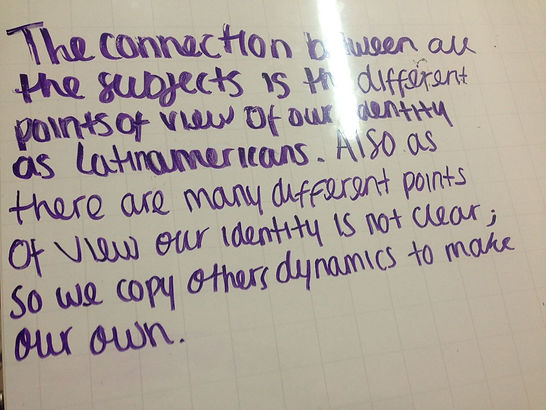 The connection between all
the subjects is the different
points of view of our identity
as Latinamericans. Also as
there are many different points
of view our identity is not clear;
so we copy others dynamics to make
our own.